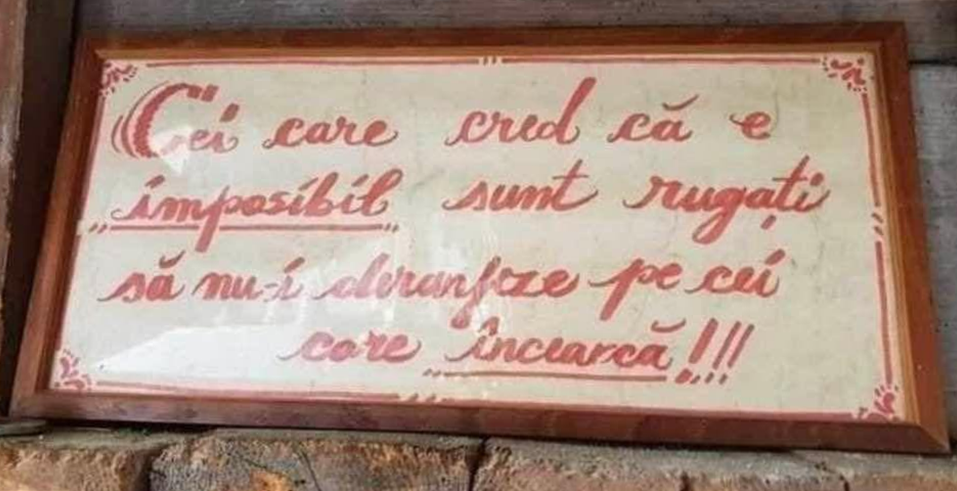 Cei care cred că e
imposibil sunt rugați
să nu-i deranjeze pe cei
care încearcă!!!